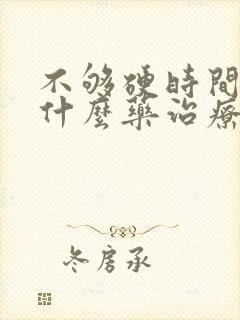 不够硬時間
什麼藥治療
冬房承